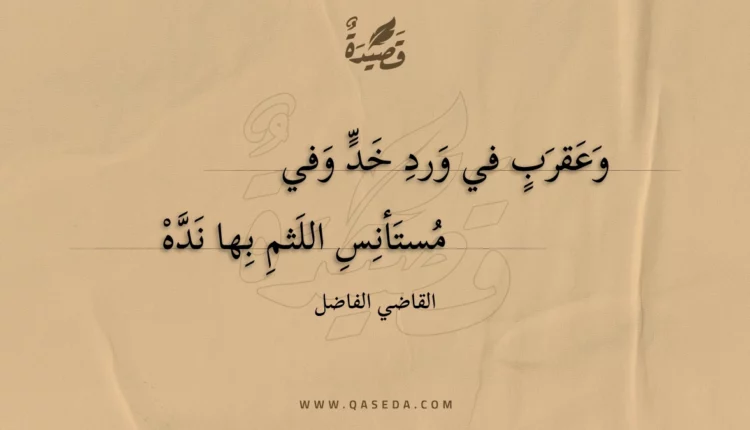 قَصِيدَةٌ
وَعَقرَبٍ في وَردِ خَدٍّ وَفي
مُستَأنِسِ اللَثمِ بِها نَدَّهْ
القاضي الفاضل
WWW.QASEDA.COM